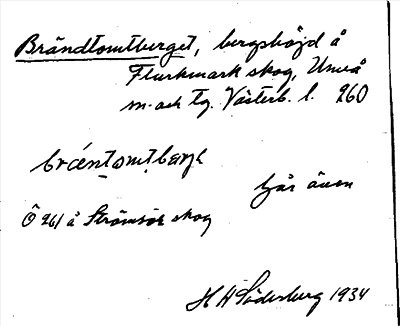 Brändtomtberget, bergshöjd å
Flurkmark skog, Umeå
m. och tg. Västerb. l. 260
bräntomtbärjə
här även
Ö 261 å Strömsör skog
H H Söderberg 1934